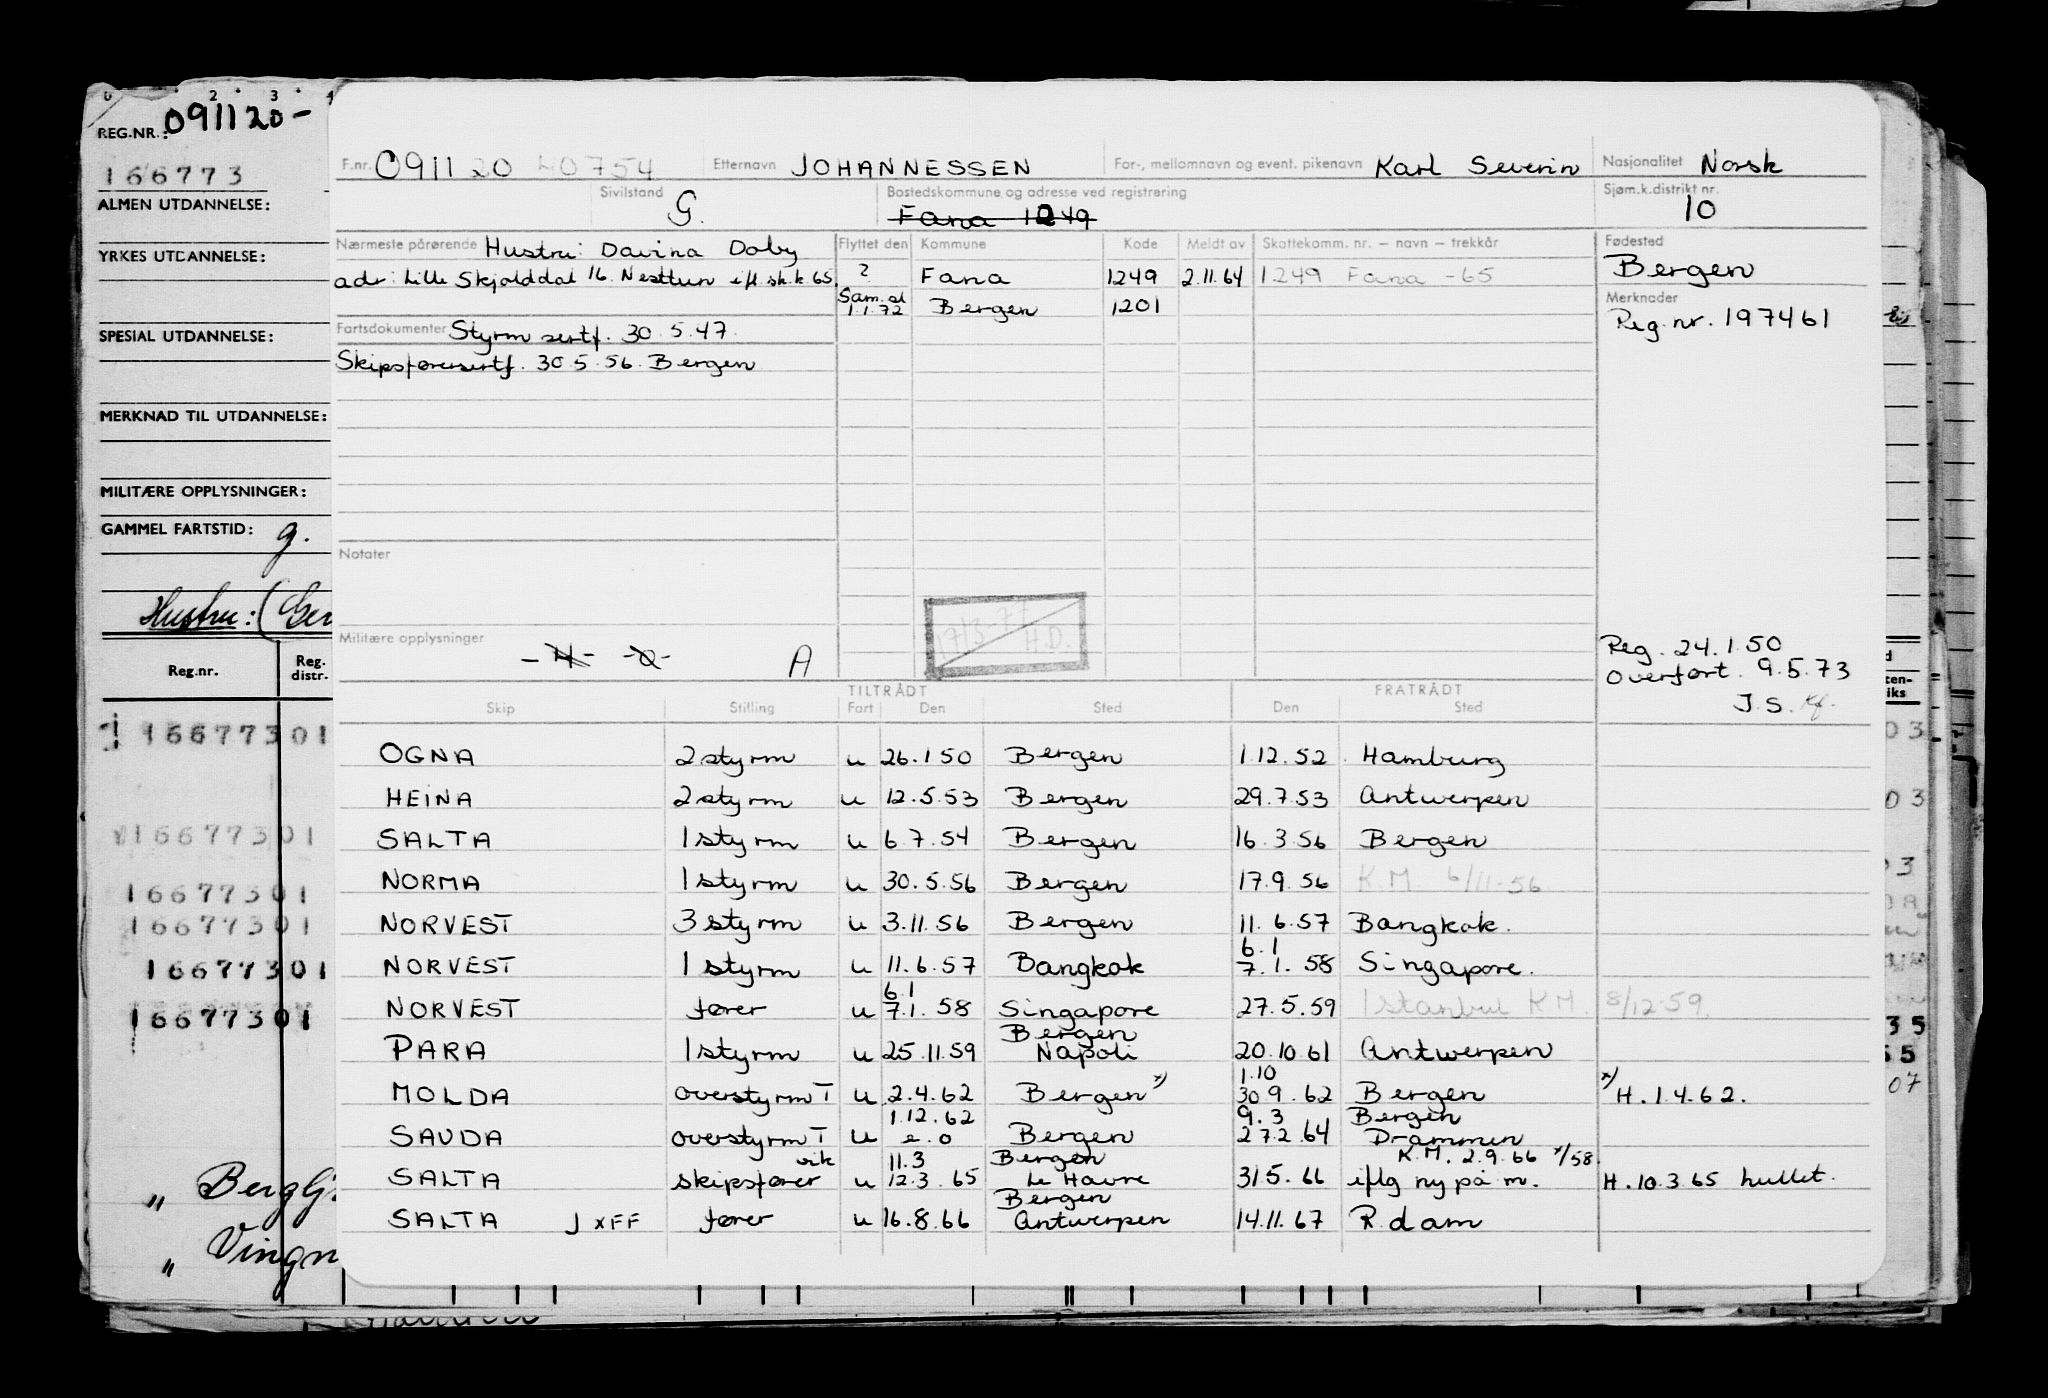 0 2 3 4
REG.NR.: 091120-
166773
ALMEN UTDANNELSE:
YRKES UTDANNELSE:
SPESIAL UTDANNELSE:
MERKNAD TIL UTDANNELSE:
MILITÆRE OPPLYSNINGER:
GAMMEL FARTSTID: g.
Hustru: (Ger
Reg.nr. Reg. distr.
16677301
16677301
16677301
16677301
16677301
16677301
" Berglj.
" Vingn
F.nr. 091120 40754 Etternavn JOHANNESSEN For-, mellomnavn og event. pikenavn Karl Severin Nasjonalitet Norsk
Sivilstand G. Bostedskommune og adresse ved registrering Fana 1249 Sjøm.k.distrikt nr. 10
Nærmeste pårørende Hustru: Davina Doby Flyttet den Kommune Kode Meldt av Skattekomm. nr. – navn – trekkår Fødested
adr: Lille Skjolddal 16. Nesttun ifl. sk.k 65. ? Fana 1249 2.11.64 1249 Fana -65 Bergen
Sam.sl 1.1.72 Bergen 1201 Merknader
Fartsdokumenter Styrm sertf. 30.5.47. Reg.nr. 197461
Skipsførersertf. 30.5.56. Bergen
Notater
17/3-77 H.D.
Militære opplysninger -N- -0- A
Reg. 24.1.50
Overført. 9.5.73
J.S. Kf.
TILTRÅDT FRATRÅDT
Skip Stilling Fart Den Sted Den Sted
OGNA 2 styrm u 26.1 50 Bergen 1.12.52 Hamburg
HEINA 2 styrm u 12.5.53 Bergen 29.7.53 Antwerpen
SALTA 1 styrm u 6.7.54 Bergen 16.3.56 Bergen
NORMA 1 styrm u 30.5.56 Bergen 17.9.56 K.M. 6/11-56
NORVEST 3 styrm u 3.11.56 Bergen 11.6.57 Bangkok.
6.1
NORVEST 1 styrm u 11.6.57 Bangkok 7.1.58 Singapore.
6.1
NORVEST fører u 7.1.58 Singapore 27.5.59 Istanbul K.M. 8/12-59.
Bergen
PARA 1 styrm u 25.11.59 Napoli 20.10.61 Antwerpen
1.10
MOLDA overstyrm T u 2.4.62 Bergen x) 30 9.62 Bergen x) H. 1.4.62.
1.12.62 9.3 Bergen
SAUDA overstyrm T u e.o Bergen 27.2.64 Drammen
vik 11.3 Bergen K.M. 2.9.66 x/58.
SALTA skipsfører u 12.3.65 Le Havre 31.5.66 iflg ny på m. H. 10.3.65 hullet.
Bergen
SALTA JXFF fører u 16.8.66 Antwerpen 14.11.67 R.dam